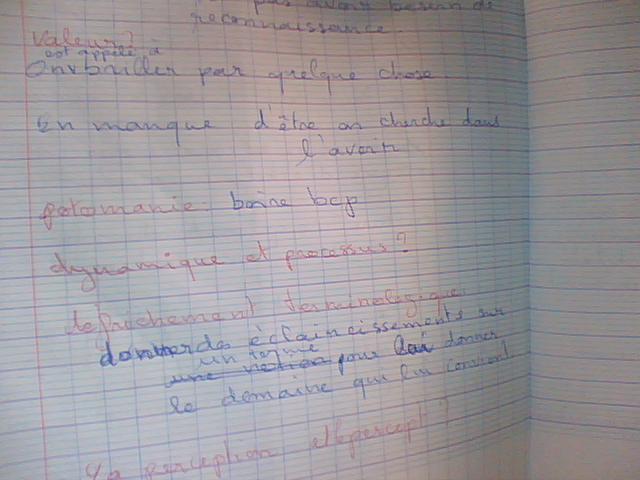 pas avoir besoin de
reconnaissance.
Valeur?
est appelé à
On va briller par quelque chose
En manque d'être on cherche dans
l'avoir
potomanie: boire bcp
dynamique et processus?
défrichement terminologique:
donner des éclaircissements sur
un terme
une notion pour lui donner
le domaine qui lui convient
La perception et le percept?